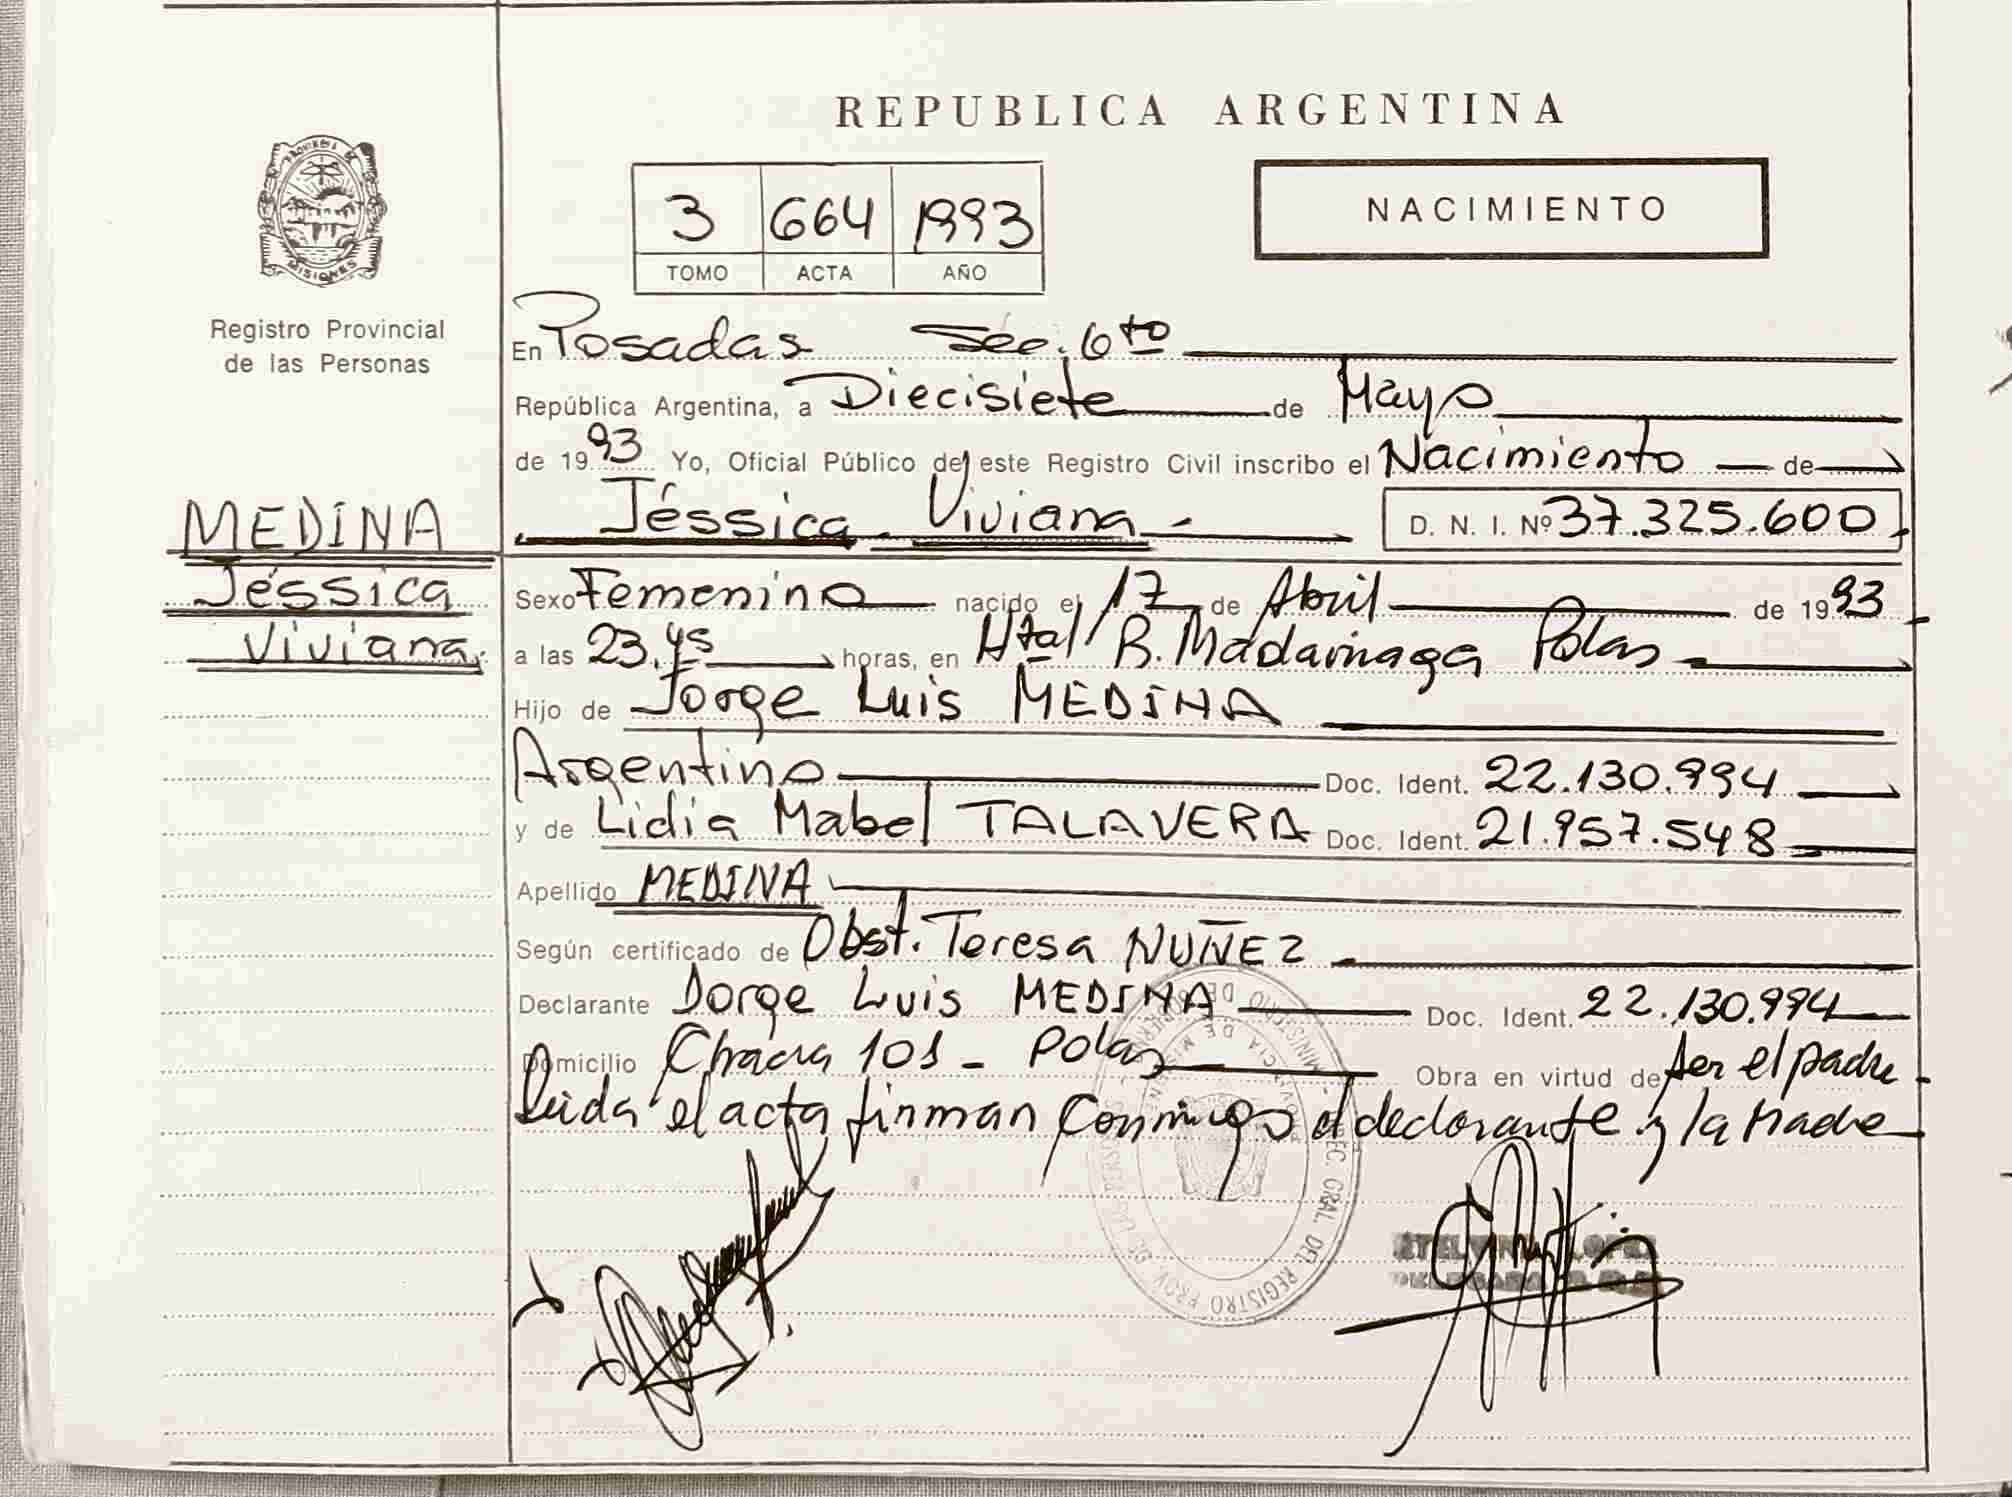 REPUBLICA ARGENTINA
PROVINCIA DE
MISIONES
Registro Provincial
de las Personas
3 664 1993
TOMO ACTA AÑO
NACIMIENTO
En Posadas Sec. 6to
República Argentina, a Diecisiete de Mayo
de 1993 Yo, Oficial Público de este Registro Civil inscribo el Nacimiento de
Jéssica Viviana D. N. I. Nº 37.325.600
MEDINA
Jéssica
Viviana
Sexo Femenino nacido el 17 de Abril de 1993
a las 23,45 horas, en Htal R. Madariaga Pdas
Hijo de Jorge Luis MEDINA
Argentino Doc. Ident. 22.130.994
y de Lidia Mabel TALAVERA Doc. Ident. 21.957.548
Apellido MEDINA
Según certificado de Obst. Teresa NUÑEZ
Declarante Jorge Luis MEDINA Doc. Ident. 22.130.994
Domicilio Chacra 101 - Pdas Obra en virtud de ser el padre
Leida el acta firman conmigo el declarante y la madre
DEL REGISTRO PROV. DE LAS PERSONAS